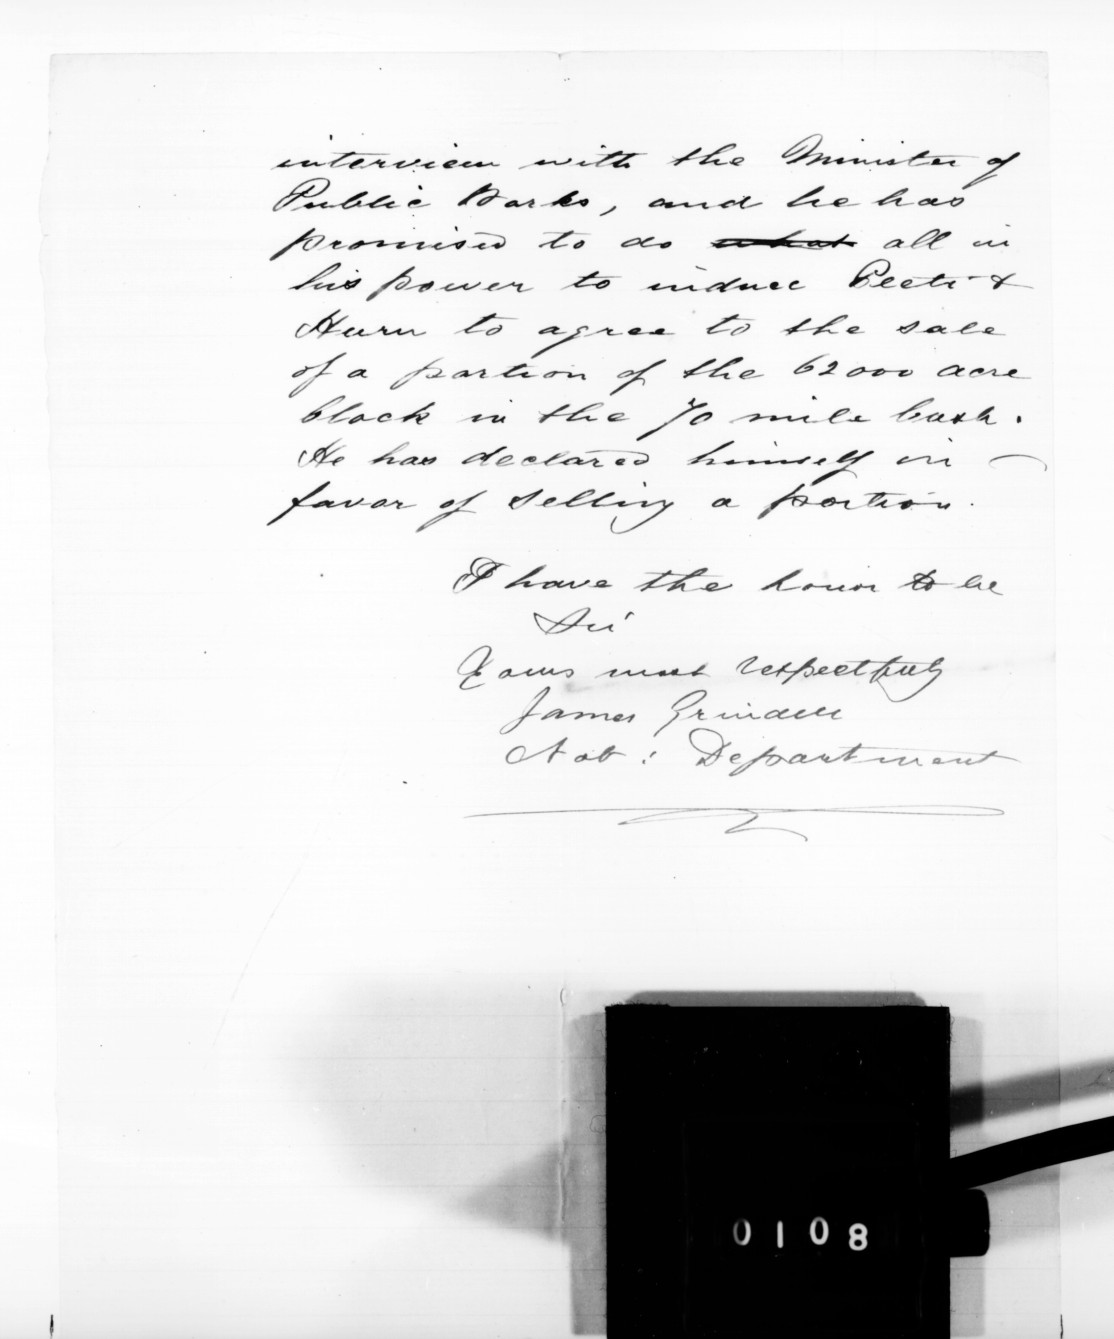 interview with the Minister of
Public Works, and he has
promised to do what all in
his power to induce Peeti &
Huru to agree to the sale
of a portion of the 62000 acre
block in the 70 mile bush.
He has declared himself in
favor of selling a portion.
I have the honor to be
Sir
Yours most respectfully
James Grindell
Nat: Department
0108